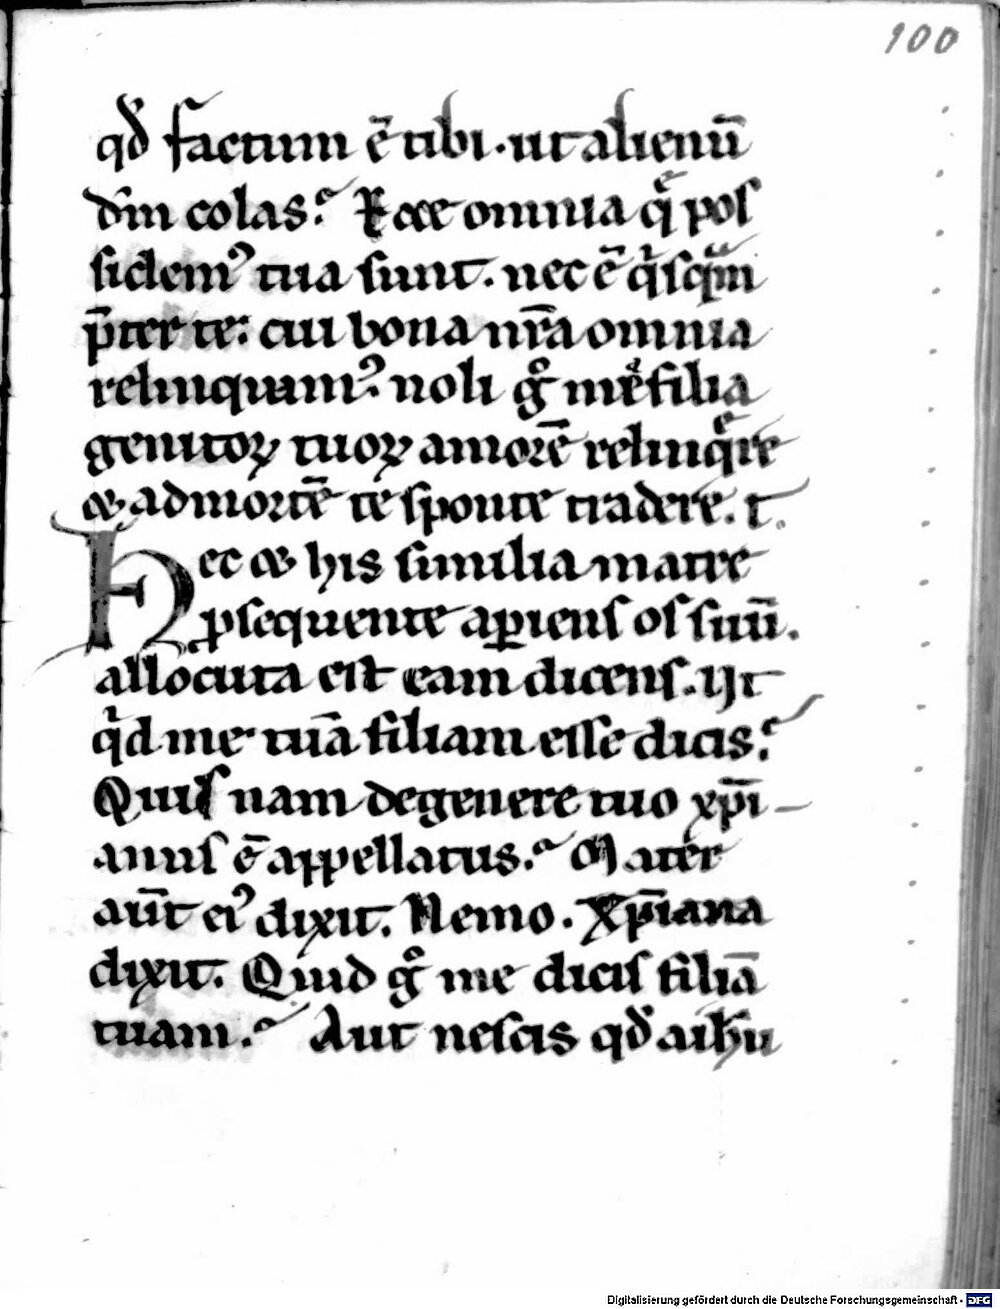 100
qd̄ factum ē tibi. ut alienū
dn̄m colas? Ecce omnia q̄ pos
sidemꝰ tua sunt. nec ē qͥsqͣm
p̄ter te: cui bona nr̄a omnia
relinquamꝰ. noli gͦ m̄ filia
genitoꝝ tuoꝝ amorē relinqͤre
& ad mortē te sponte tradere.
Hec & his similia matre
ꝓsequente aꝑiens os suū.
allocuta est eam dicens. Ut
qͥd me tuā filiam esse dicis?
Quis nam de genere tuo xp̄i-
anus ē appellatus? Mater
aūt eiꝰ dixit. Nemo. Xp̄iana
dixit. Quid gͦ me dicis filiā
tuam? Aut nescis qd̄ a ih̄u
Digitalisierung gefördert durch die Deutsche Forschungsgemeinschaft - DFG